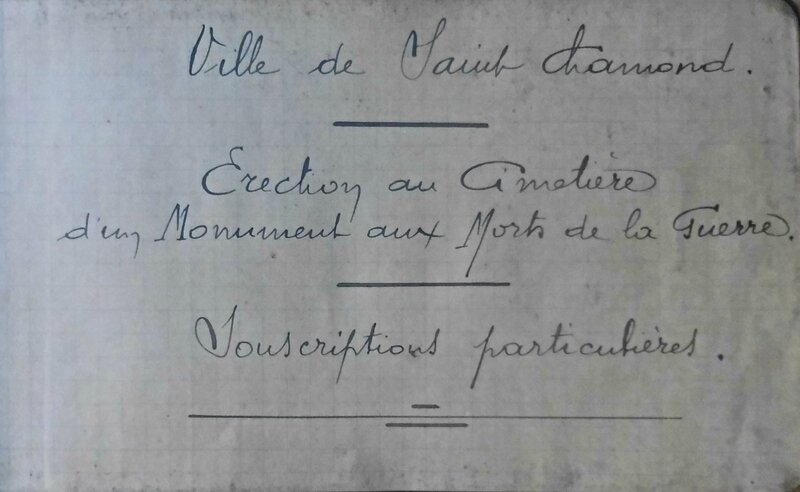 Ville de Saint Chamond.
Erection au Cimetière
d'un Monument aux Morts de la Guerre.
Souscriptions particulières.